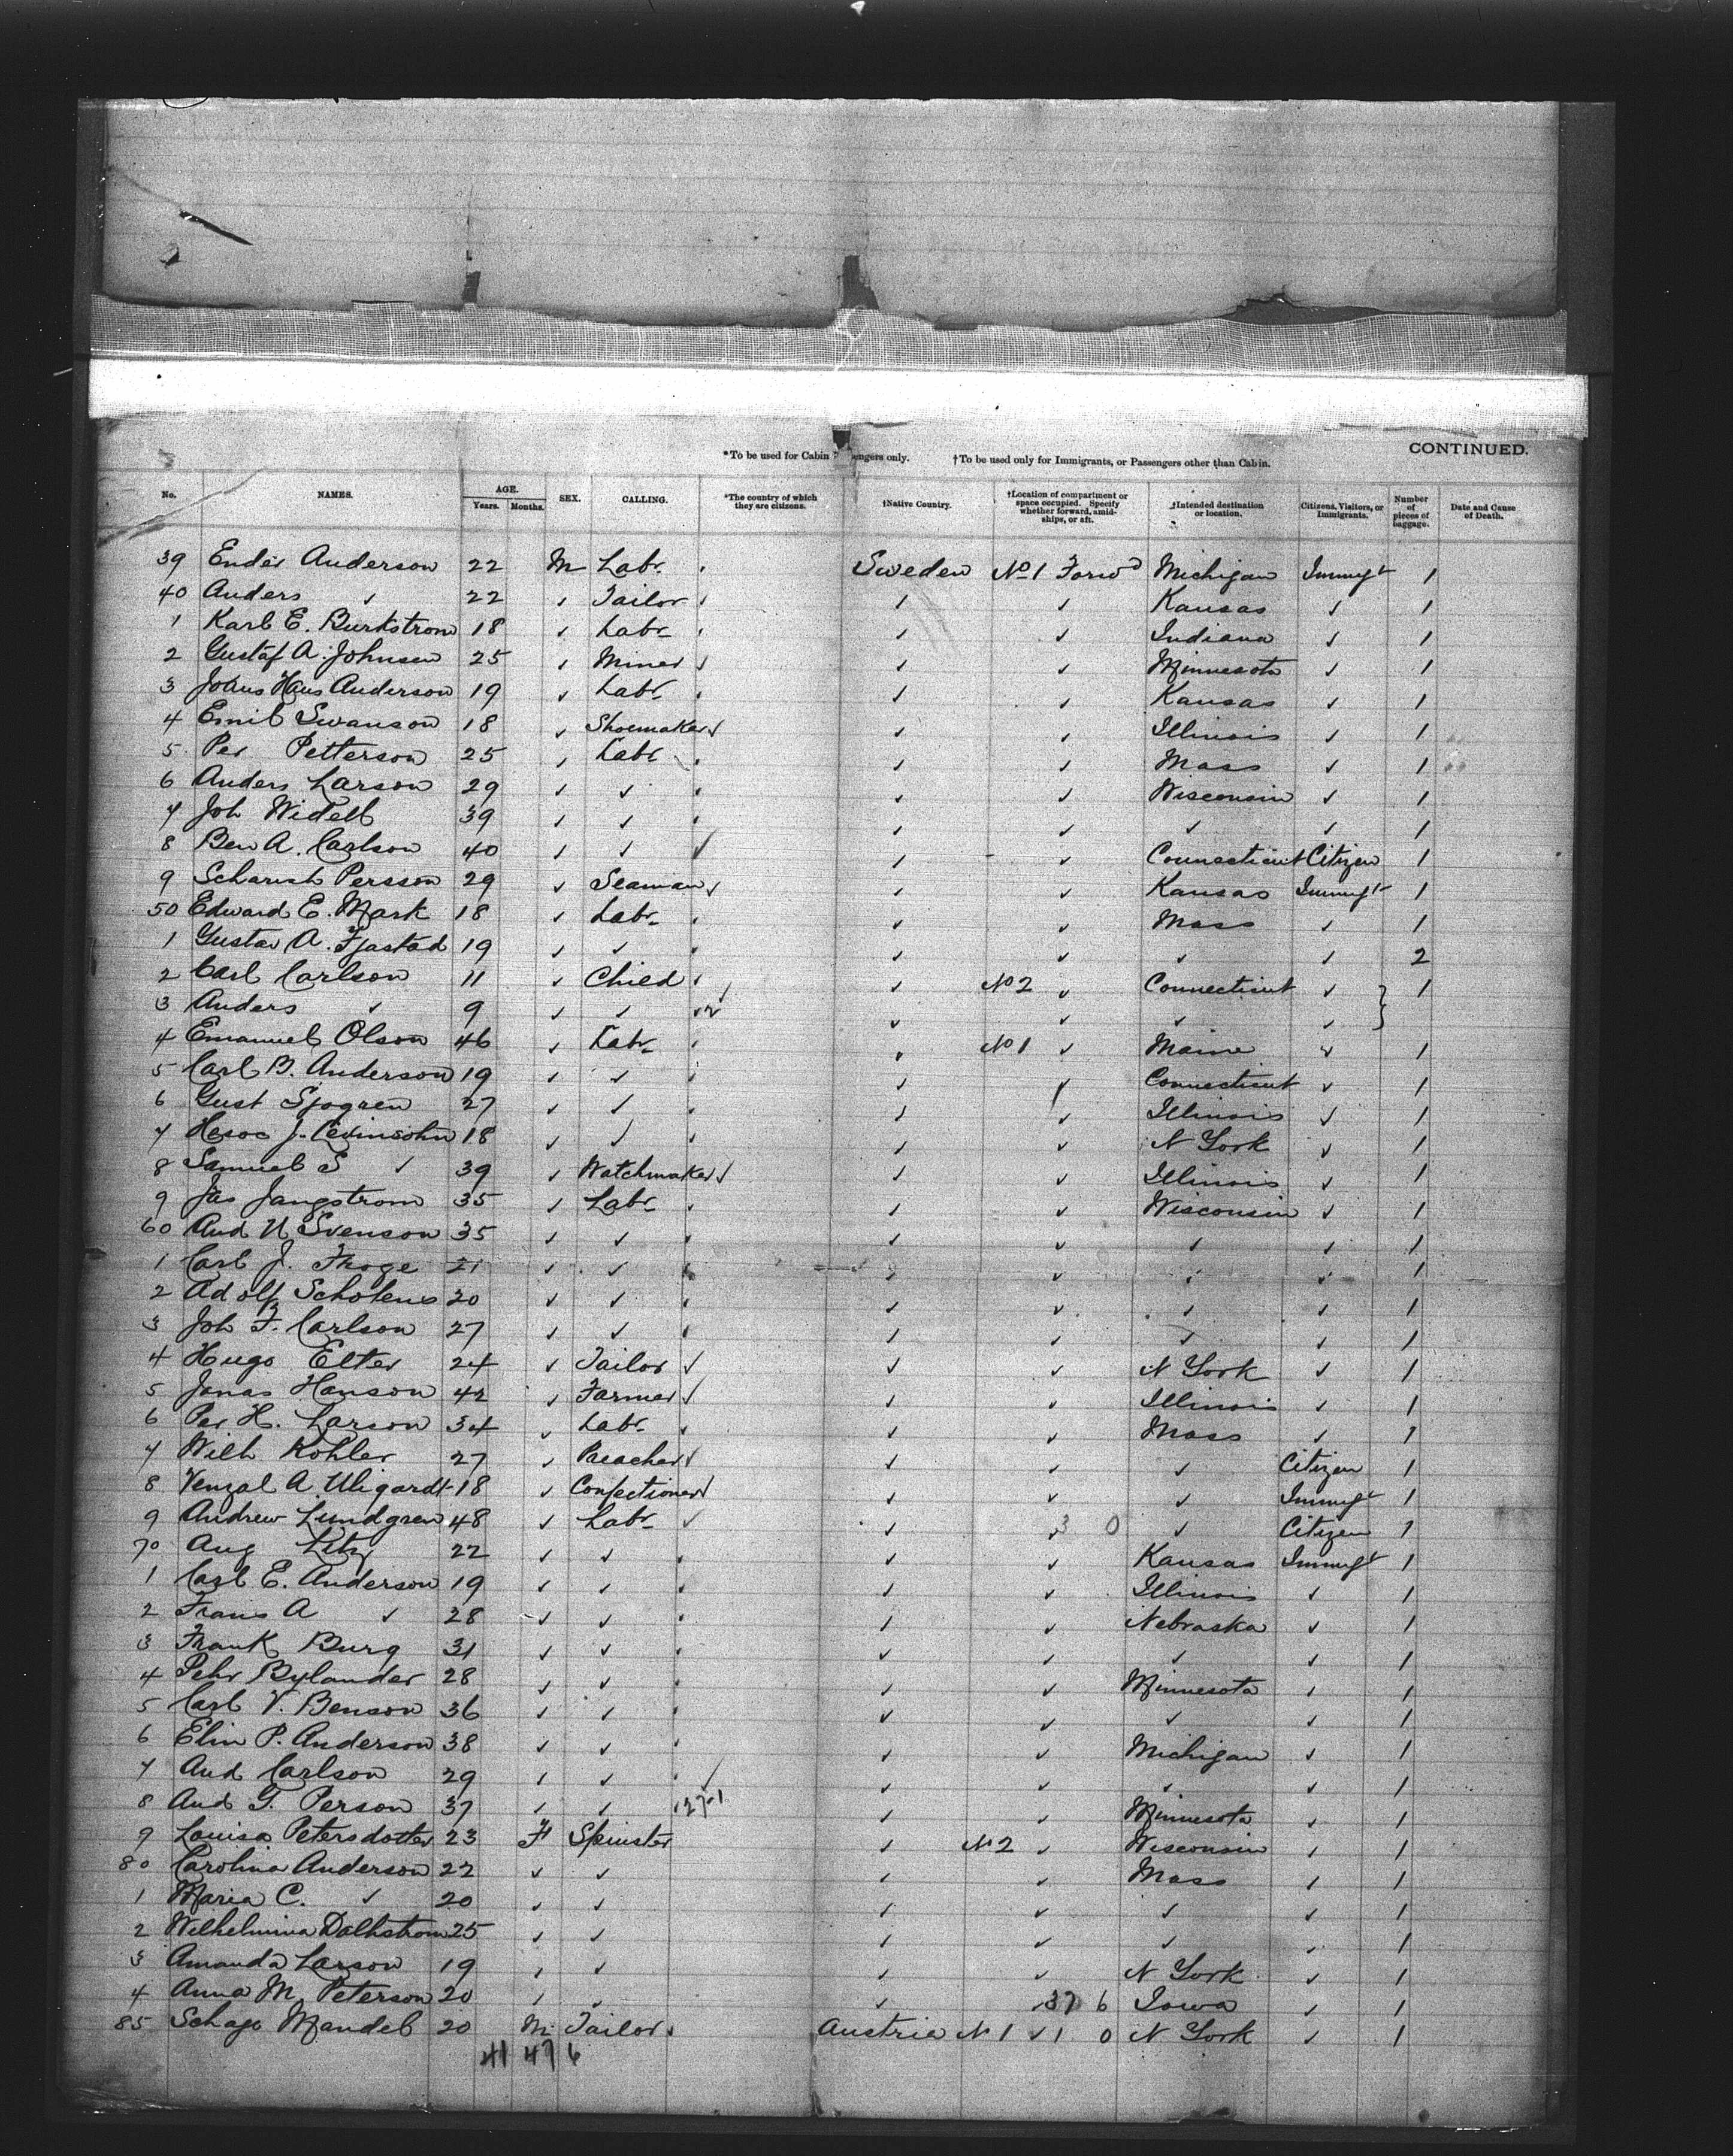 CONTINUED.
*To be used for Cabin Passengers only. †To be used only for Immigrants, or Passengers other than Cabin.
No. NAMES. AGE. Years. Months. SEX. CALLING. *The country of which they are citizens. †Native Country. †Location of compartment or space occupied. Specify whether forward, amidships, or aft. †Intended destination or location. Citizens, Visitors, or Immigrants. Number of pieces of baggage. Date and Cause of Death.
39 Ender Anderson 22 M Labr. Sweden No 1 Forwd Michigan Immigt 1
40 Anders ✓ 22 ✓ Tailor ✓ ✓ Kansas ✓ 1
1 Karl E. Burkstrom 18 ✓ Labr ✓ ✓ Indiana ✓ 1
2 Gustaf A. Johnsen 25 ✓ Miner ✓ ✓ ✓ Minnesota ✓ 1
3 Johns Hans Anderson 19 ✓ Labr ✓ ✓ Kansas ✓ 1
4 Emil Swanson 18 ✓ Shoemaker ✓ ✓ ✓ Illinois ✓ 1
5 Per Petterson 25 ✓ Labr ✓ ✓ Mass ✓ 1
6 Anders Larson 29 ✓ ✓ ✓ ✓ Wisconsin ✓ 1
7 Joh Widell 39 ✓ ✓ ✓ ✓ ✓ ✓ 1
8 Ben A. Carlson 40 ✓ ✓ ✓ ✓ ✓ Connecticut Citizen 1
9 Persson 29 ✓ Seaman ✓ ✓ ✓ Kansas Immigt 1
50 Edward E. Mark 18 ✓ Labr ✓ ✓ Mass ✓ 1
1 Gustav A. Fjastad 19 ✓ ✓ ✓ ✓ ✓ ✓ 2
2 Carl Carlson 11 ✓ Chied ✓ No 2 ✓ Connecticut ✓ 1
3 Anders ✓ 9 ✓ ✓ 2 ✓ ✓ ✓ ✓
4 Emanuel Olson 46 ✓ Labr ✓ No 1 ✓ Maine ✓ 1
5 Carl B. Anderson 19 ✓ ✓ ✓ ✓ Connecticut ✓ 1
6 Gust Sjogren 27 ✓ ✓ ✓ ✓ Illinois ✓ 1
7 J. Levinsohn 18 ✓ ✓ ✓ ✓ N York ✓ 1
8 Samuel S ✓ 39 ✓ Watchmaker ✓ ✓ ✓ Illinois ✓ 1
9 Jas Jangstrom 35 ✓ Labr ✓ ✓ Wisconsin ✓ 1
60 And N Svenson 35 ✓ ✓ ✓ ✓ ✓ ✓ 1
1 Carl J. Froge 21 ✓ ✓ ✓ ✓ ✓ ✓ 1
2 Adolf Scholens 20 ✓ ✓ ✓ ✓ ✓ ✓ 1
3 Joh F. Carlson 27 ✓ ✓ ✓ ✓ ✓ ✓ 1
4 Hugo Elter 24 ✓ Tailor ✓ ✓ ✓ N York ✓ 1
5 Jonas Hanson 42 ✓ Farmer ✓ ✓ ✓ Illinois ✓ 1
6 Per H. Larson 34 ✓ Labr ✓ ✓ Mass ✓ 1
7 Wilh Kohler 27 ✓ Preacher ✓ ✓ ✓ ✓ Citizen 1
8 Venzal A. Uligardt 18 ✓ Confectioner ✓ ✓ ✓ ✓ Immigt 1
9 Andrew Lundgren 48 ✓ Labr ✓ ✓ 3 0 ✓ Citizen 1
70 Aug 22 ✓ ✓ ✓ ✓ Kansas Immigt 1
1 Carl E. Anderson 19 ✓ ✓ ✓ ✓ Illinois ✓ 1
2 Frans A ✓ 28 ✓ ✓ ✓ ✓ Nebraska ✓ 1
3 Frank Burg 31 ✓ ✓ ✓ ✓ ✓ ✓ 1
4 Pehr Bylander 28 ✓ ✓ ✓ ✓ Minnesota ✓ 1
5 Carl V. Benson 36 ✓ ✓ ✓ ✓ ✓ ✓ 1
6 Elin P. Anderson 38 ✓ ✓ ✓ ✓ Michigan ✓ 1
7 And Carlson 29 ✓ ✓ ✓ ✓ ✓ ✓ ✓ 1
8 And G. Person 37 ✓ ✓ 27-1 ✓ ✓ Minnesota ✓ 1
9 Louisa Petersdotter 23 F Spinster ✓ No 2 ✓ Wisconsin ✓ 1
80 Carolina Anderson 22 ✓ ✓ ✓ ✓ Mass ✓ 1
1 Maria C. ✓ 20 ✓ ✓ ✓ ✓ ✓ ✓ 1
2 Wilhelmina Dalhstrom 25 ✓ ✓ ✓ ✓ ✓ ✓ 1
3 Amanda Larson 19 ✓ ✓ ✓ ✓ N York ✓ 1
4 Anna M. Peterson 20 ✓ ✓ ✓ 37 6 Iowa ✓ 1
85 Schage Mandel 20 M Tailor Austria N 1 ✓ 1 0 N York ✓ 1
41 47 6